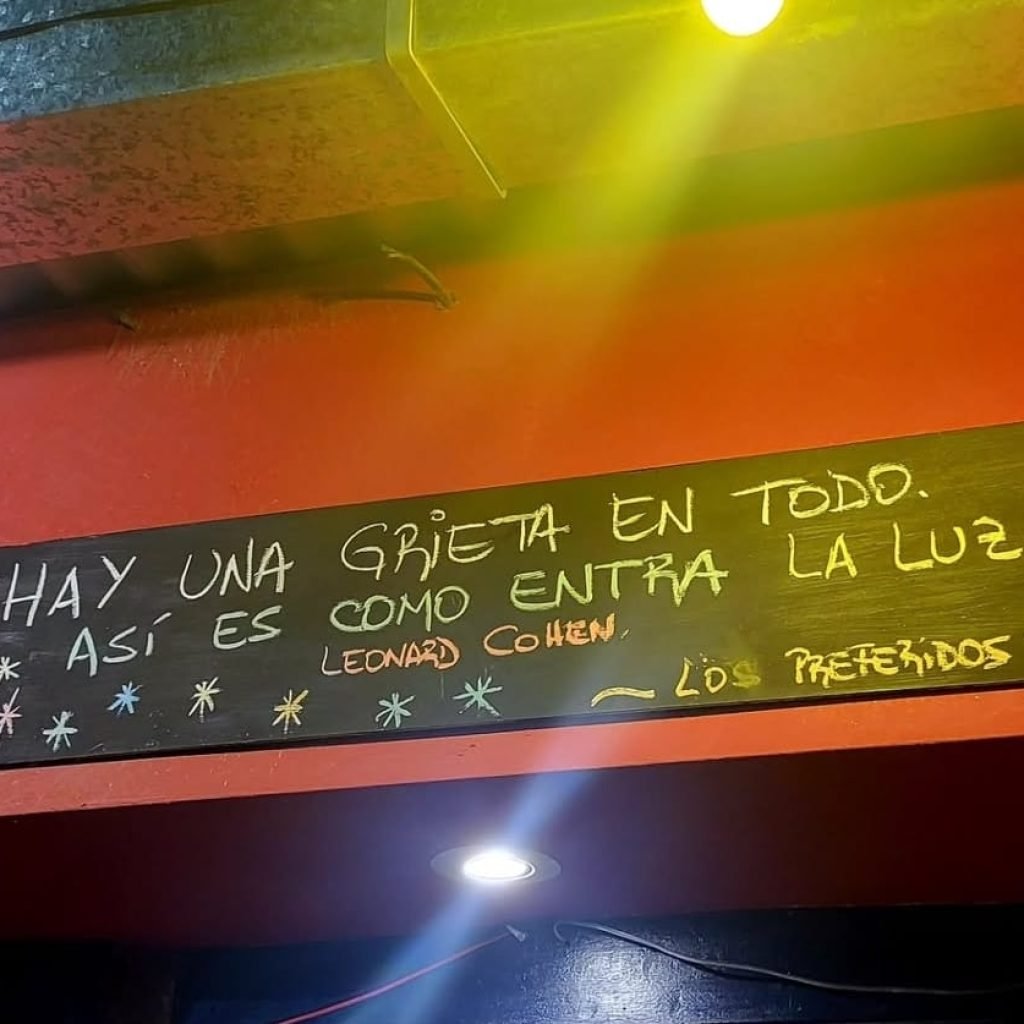 HAY UNA GRIETA EN TODO.
ASÍ ES COMO ENTRA LA LUZ
LEONARD COHEN.
~ LOS PREFERIDOS